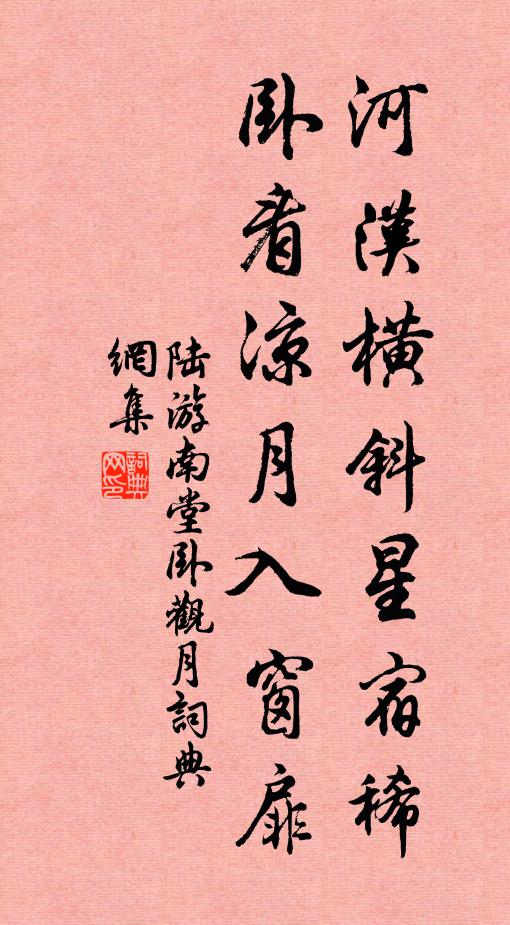 河漢橫斜星宿稀
臥看涼月入窗扉
陆游南堂臥觀月詞典
網集
詞典
网印